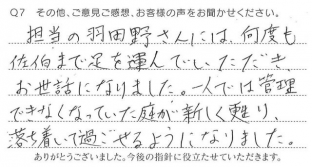 Q7 その他、ご意見ご感想、お客様の声をお聞かせください。
担当の羽田野さんには、何度も
佐伯まで足を運んでいただき、
お世話になりました。一人では管理
できなくなっていた庭が新しく甦り、
落ち着いて過ごせるようになりました。
ありがとうございました。今後の指針に役立たせていただきます。